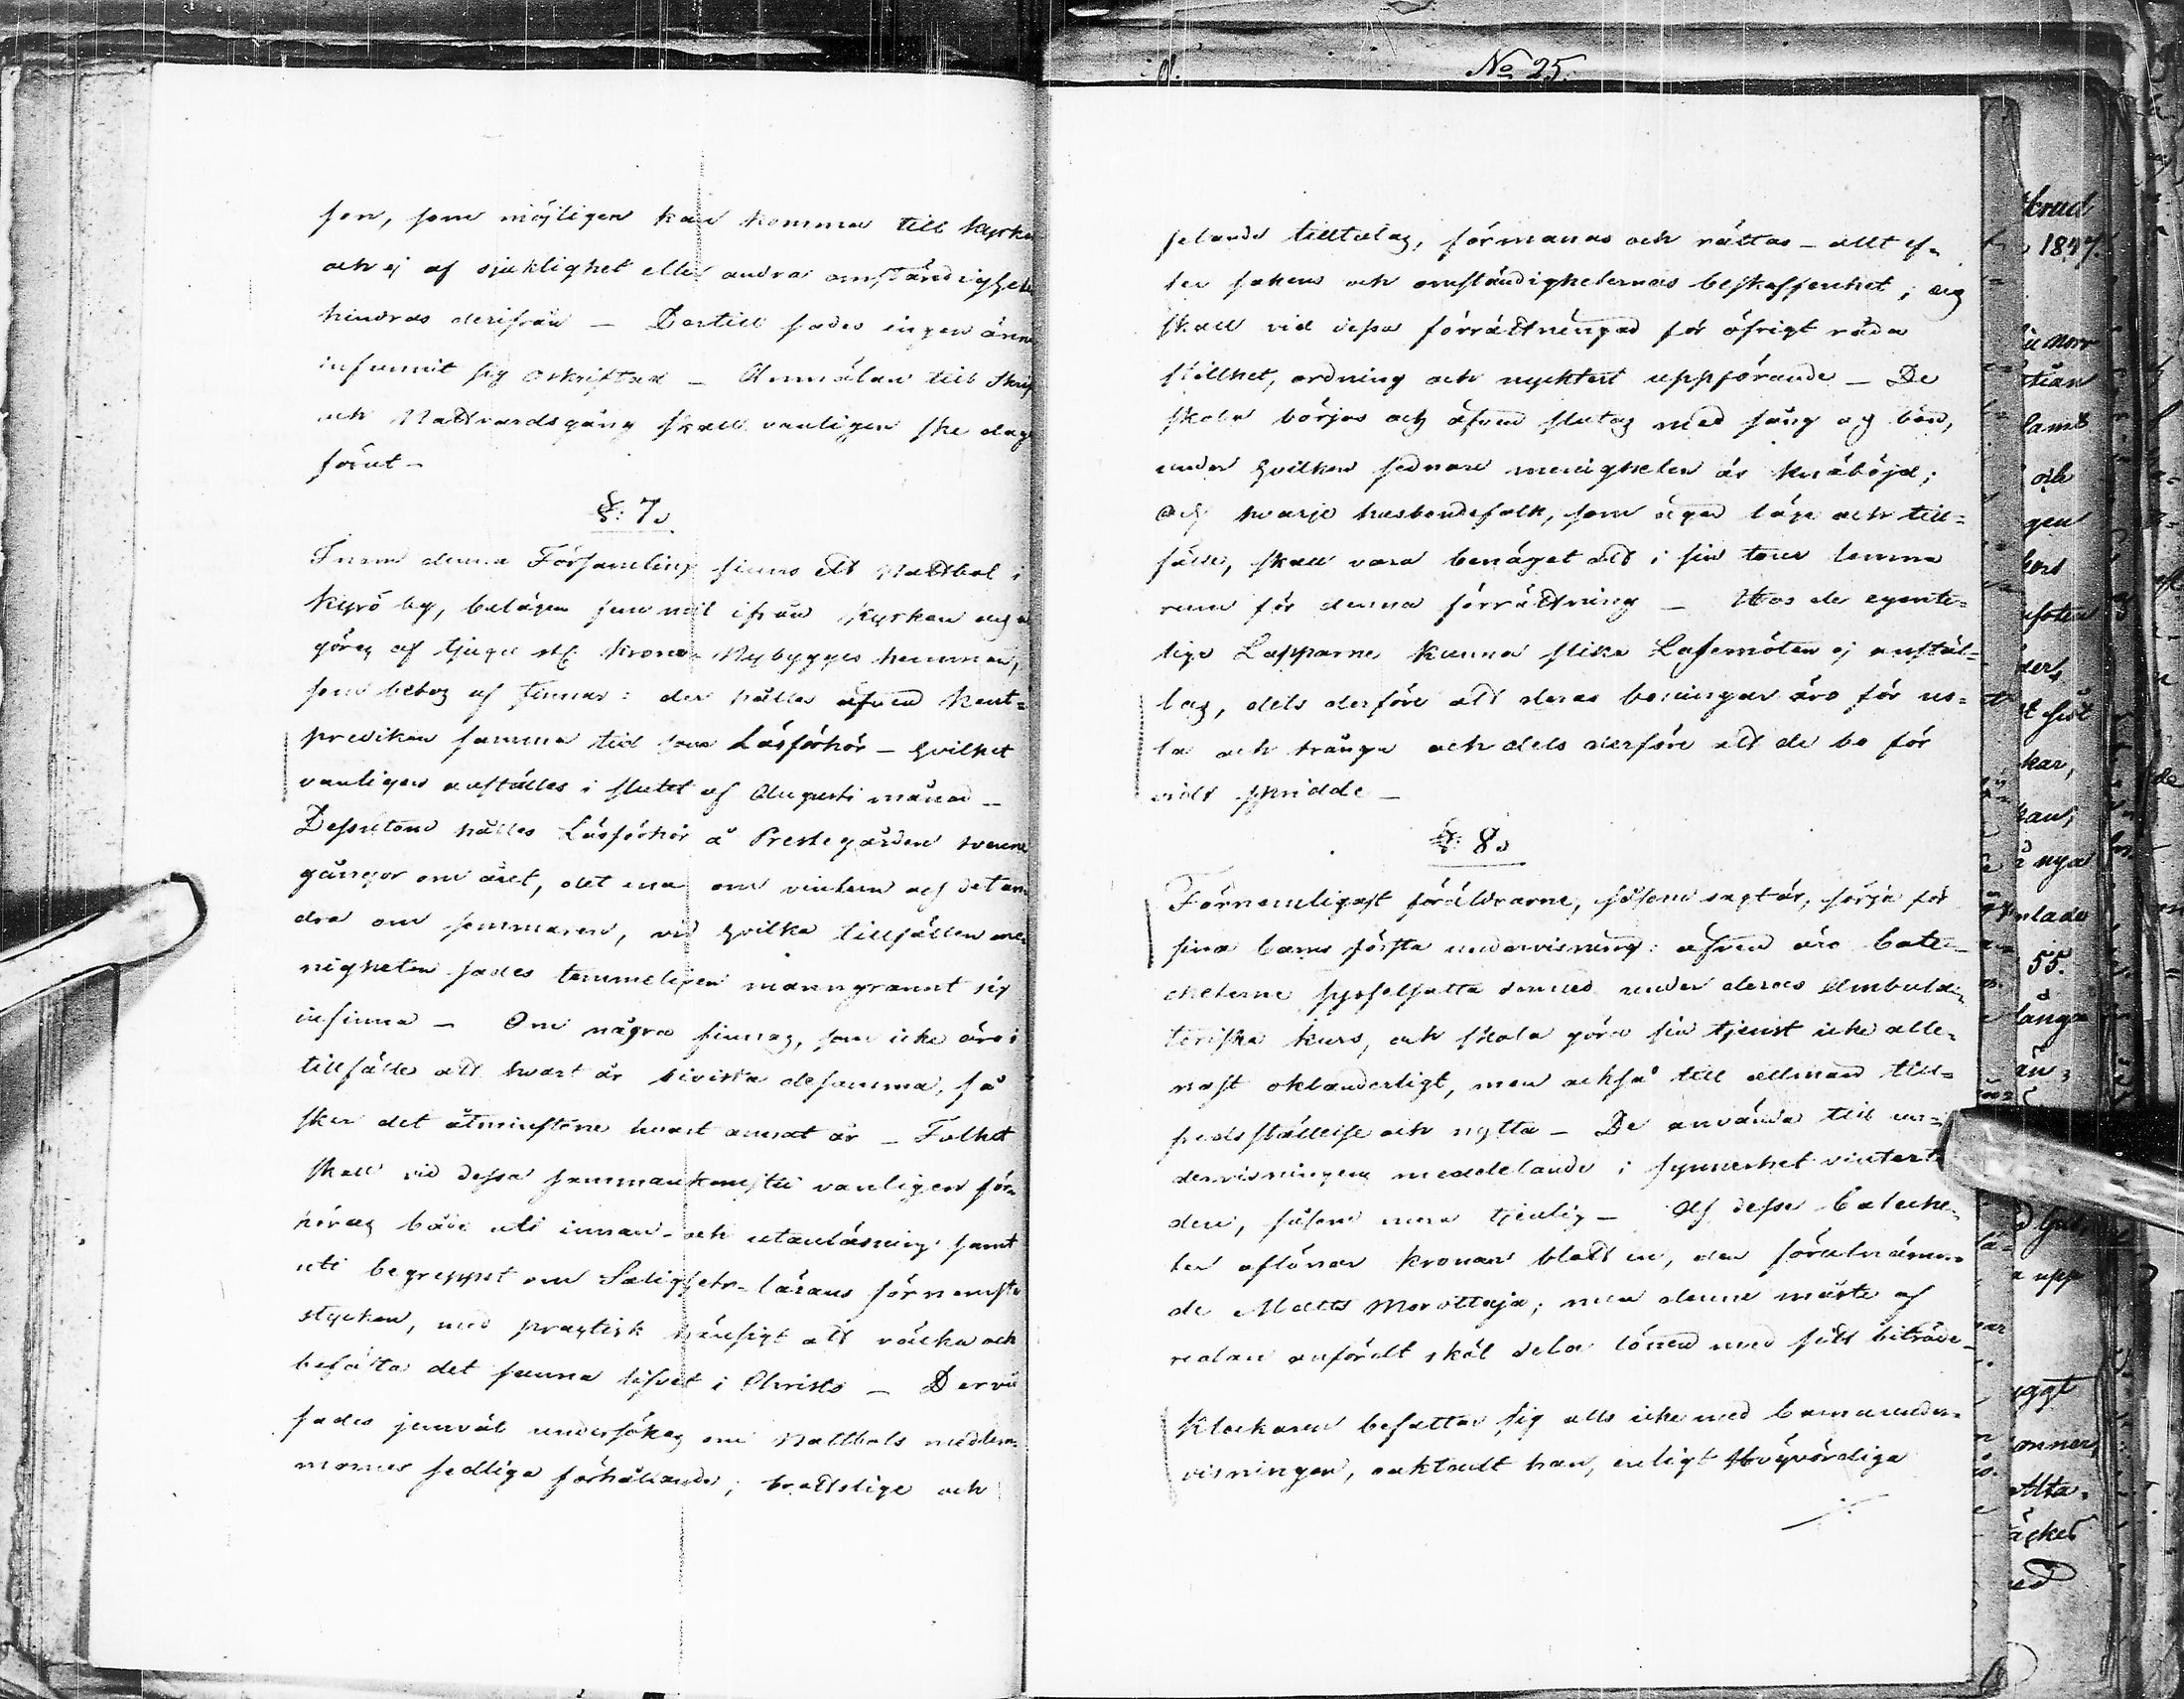 son, som möjligen kan komma till kyrkan
och ej af sjuklighet eller andra omständigheter
hindras derifrån — Dertill fades ingen ännu
infunnit sig oskriftad — Anmälan till Skrift
och Nattvardsgång skall vanligen ske dagen
förut —
§: 7.
Inom denna Församling finns ett Nattbol i
Kyrö by, belägen fem mil ifrån Kyrkan och ut
göres af tjugu st. Krono-Nybygges hemman,
som bebos af finnar: der hålles äfven Kent-
predikan samma tid som Läsförhör — hvilket
vanligen anställes i slutet af Augusti månad —
Dessutom hålles Läsförhör å Prestegården tvenne
gångor om året, det ena om vintern och det an-
dra om sommaren, vid hvilka tillfällen me-
nigheten fades temmeligen manngrannt sig
infinna — Om några finnas, som icke äro i
tillfälle att hvart år bivista desamma, så
sker det åtminstone hvart annat år — Folket
skall vid dessa sammankomster vanligen för-
höras både uti innan- och utanläsning samt
uti begreppet om Salighets-lärans förnemsta
stycken, med praktisk hänsigt att väcka och
befästa det sanna lifvet i Christo — Dervid
fades jemväl undersökas om Nattbols medlem-
marnes sedliga förhållande; brottslige och
No 25.
felande tilltalas, förmanas och rättas — allt ef-
ter sakens och omständigheternas beskaffenhet; och
skall vid dessa förrättningar för öfrigt råda
stillhet, ordning och nyktert uppförande — De
skola börjas och äfven slutas med sång och bön,
under hvilken sednare menigheten är knäböjd;
och hvarje husbondefolk, som äger läge och till-
fälle, skall vara benäget att i sin tour lemna
rum för denna förrättning — Hos de egente-
lige Lapparne kunna slika Läsemöten ej anstäl-
las, dels derföre att deras boningar äro för us-
la och trånga och dels derföre att de bo för
vidt spridde —
§: 8.
Förnemligast föräldrarne, såsom sagt är, sörja för
sina barns första undervisning: äfven äro Cate-
cheterne sysselsatta dermed under deras Ambula-
toriska kurs, och skola göra sin tjenst icke alle-
nast oklanderligt, men också till allmän till-
fredsställelse och nytta — De använda till un-
dervisningens meddelande i synnerhet vinterti-
den, såsom mera tjenlig — Af desse Cateche-
ter aflönar Kronan blott en, den förutnämn-
de Matts Morottaja; men denne måste af
redan anfördt skäl dela lönen med sitt biträde —
Klockaren befattar sig alls icke med barnaunder-
visningen, oaktadt han, enligt Högvördiga